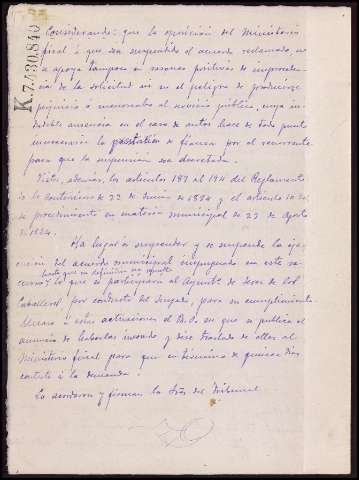 K.7.430.840
Considerando: que la oposición del Ministerio
fiscal á que sea suspendido el acuerdo reclamado, no
se apoya tampoco en razones positivas de improceden
cia de la solicitud ni en el peligro de producirse
perjuicio ó menoscabo al servicio público, cuya in
dudable ausencia en el caso de autos hace de todo punto
innecesaria la prestación de fianza por el recurrente
para que la suspensión sea decretada.
Vistos, además, los artículos 187 al 194 del Reglamento
de lo Contencioso de 22 de Junio de 1894 y el artículo
de procedimiento en materia municipal de 23 de Agosto
de 1924.
Ha lugar á suspender y se suspende la eje
cución del acuerdo municipal impugnado en este re
hasta que en definitiva se resuelva
curso y lo que se participará al Ayuntº de Jerez de los
Caballeros por conducto del Juzgado, para su cumplimiento.
á estas actuaciones el B.O. en que se publica el
anuncio de haberlas incoado, y dése traslado de ellas al
Ministerio fiscal para que en término de quince días
conteste á la demanda.
Lo acordaron y firman los Sres del Tribunal